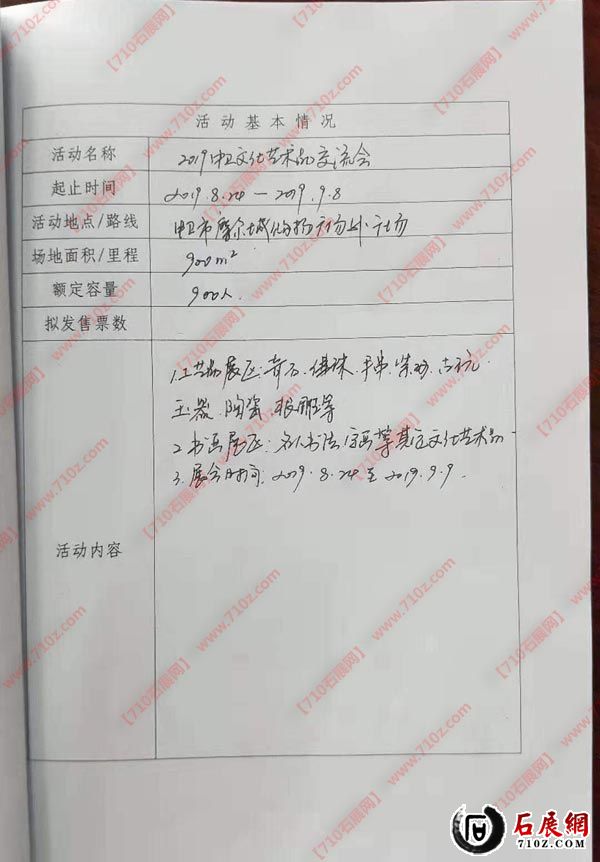 活动基本情况
活动名称 2019中卫文化艺术品交流会
起止时间 2019.8.24—2019.9.8
活动地点/路线 中卫市 城 外广场
场地面积/里程 900m²
额定容量 900人.
拟发售票数
活动内容
1.工艺品展区:奇石.蜜蜡.手串.紫砂.古玩.
玉器.陶瓷.根雕等
2.书画展区:名人书法字画等其它文化艺术品
3.展会时间.2019.8.24至2019.9.9.
【710石展网】www.710z.com
石展網
710Z.COM